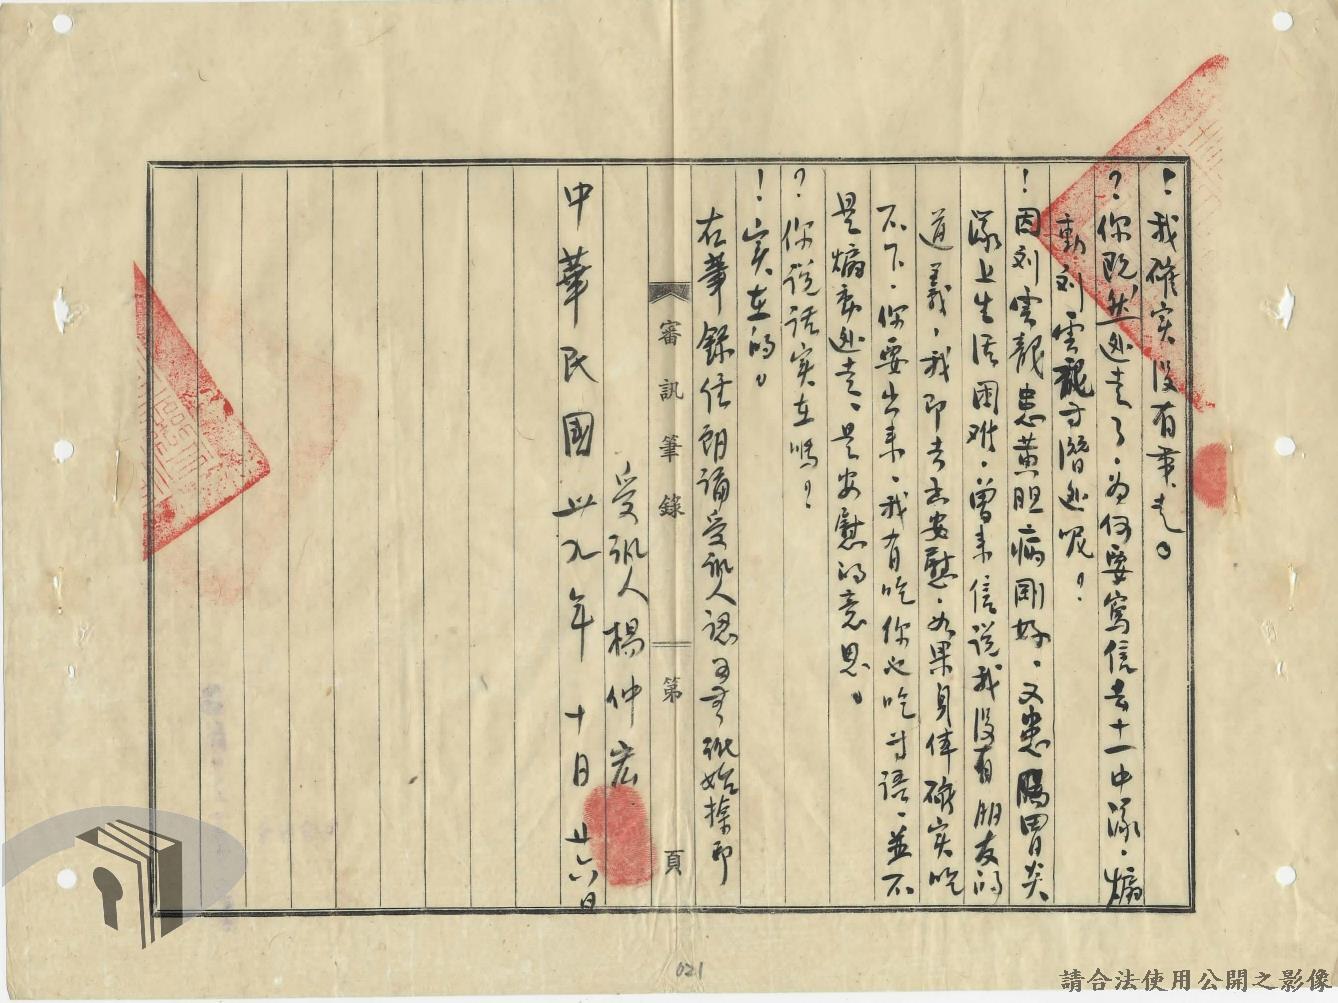 ！我確实没有棄走。
？你既然逃走了．为何要寫信去十一中隊．煽
動刘雲龍方潛逃呢？
！因刘雲龍患黄胆病剛好．又患腸胃炎
隊上生活困难．曾来信说我没有朋友的
道義．我即去信安慰．如果身体確实吃
不下．你要出来．我有吃你也吃等语．並不
是煽動逃走．是安慰的意思。
？你说话实在嗎？
！实在的。
右筆錄任朗誦受讯人認為無訛始捺印
審訊筆錄
第 頁
受讯人楊仲宏
中華民國卅九年十月廿六日
021
請合法使用公開之影像